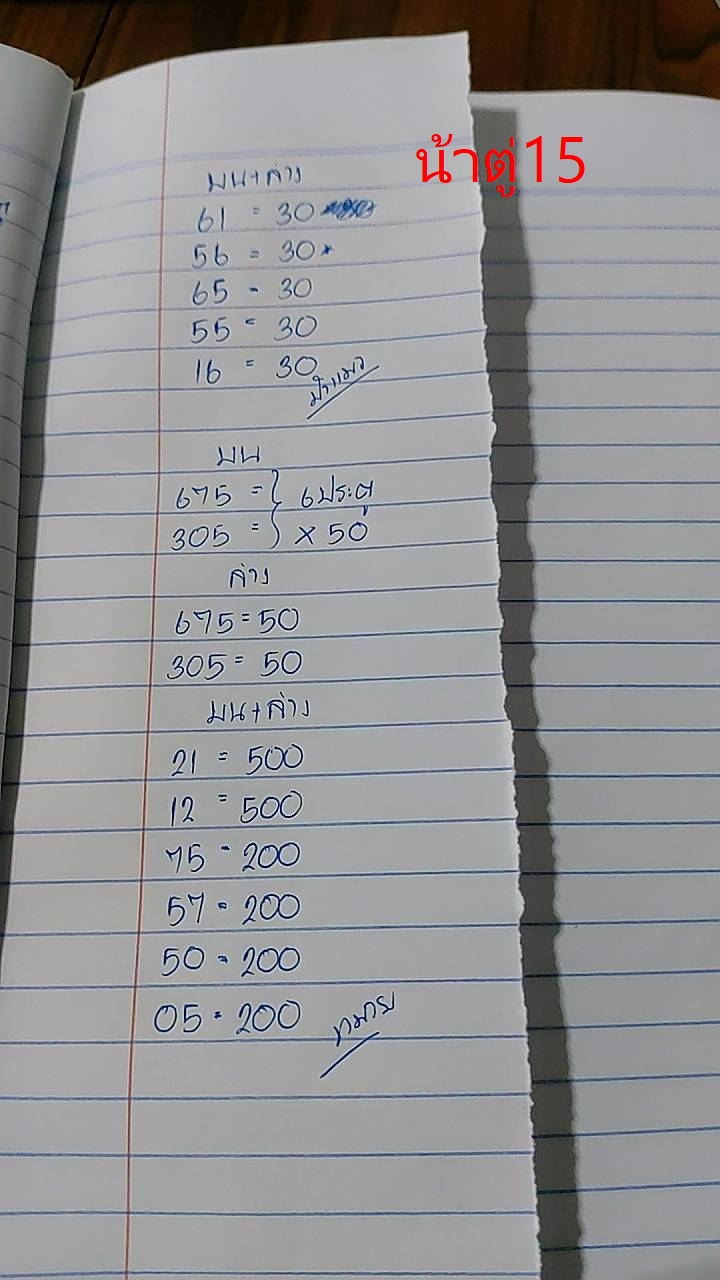 น้าตู่15
บน+ล่าง
61 = 30
56 = 30
65 - 30
55 = 30
16 = 30
ป้าแมว
บน
675 = } 6ประตู
305 = } x 50
ล่าง
675=50
305= 50
บน+ล่าง
21 = 500
12 = 500
75 - 200
57 = 200
50 - 200
05 = 200